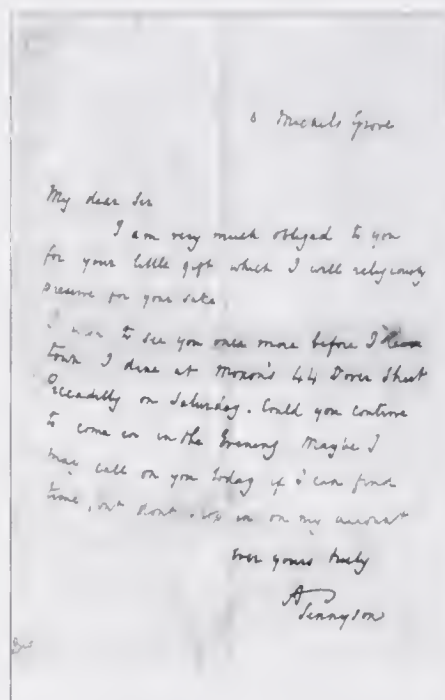 8 Michels Grove
My dear Sir
I am very much obliged to you
for your little gift which I will religiously
preserve for your sake.
I wish to see you once more before I leave
town I dine at Moxon's 44 Dover Street
Piccadilly on Saturday. Could you contrive
to come in in the Evening Maybe I
may call on you today if I can find
time, but dont stop in on my account
Ever yours truly
A Tennyson